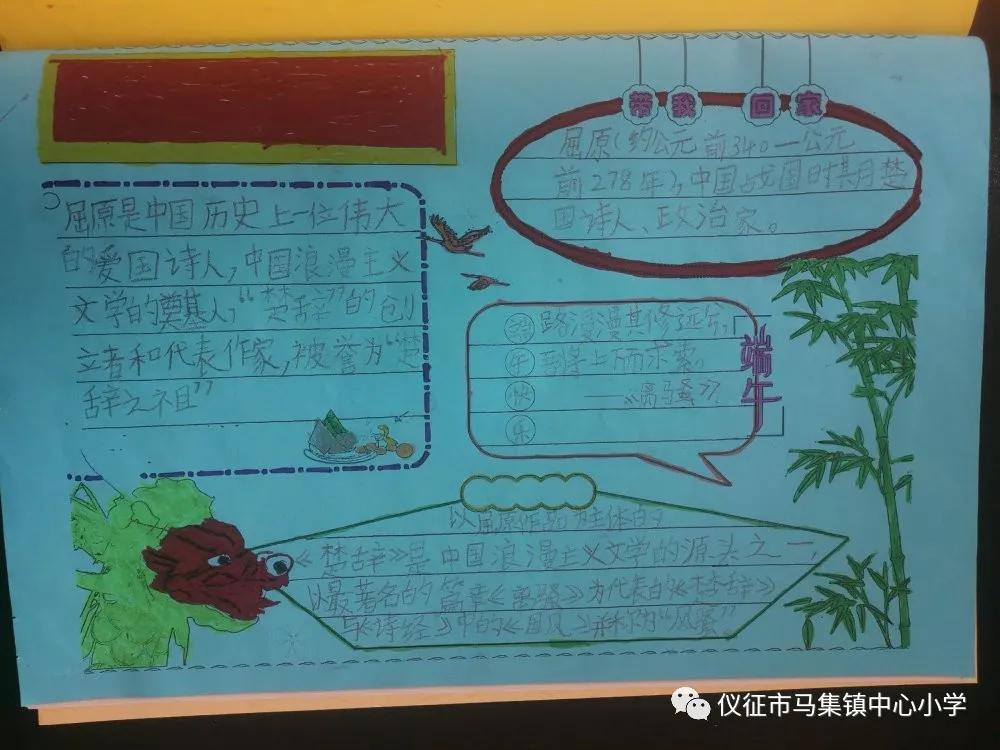 带我回家
屈原(约公元前340—公元
前278年),中国战国时某月楚
国诗人、政治家。
屈原是中国历史上一位伟大
的爱国诗人,中国浪漫主义
文学的奠基人,“楚辞”的创
立者和代表作家,被誉为“楚
辞之祖”
路漫漫其修远兮,
吾将上而求索。
——《离骚》
端午
午
快
乐
以屈原作品为主体的
《楚辞》是中国浪漫主义文学的源头之一,
以最著名的篇章《离骚》为代表的《楚辞》
《诗经》中的《国风》并称为“风骚”
仪征市马集镇中心小学